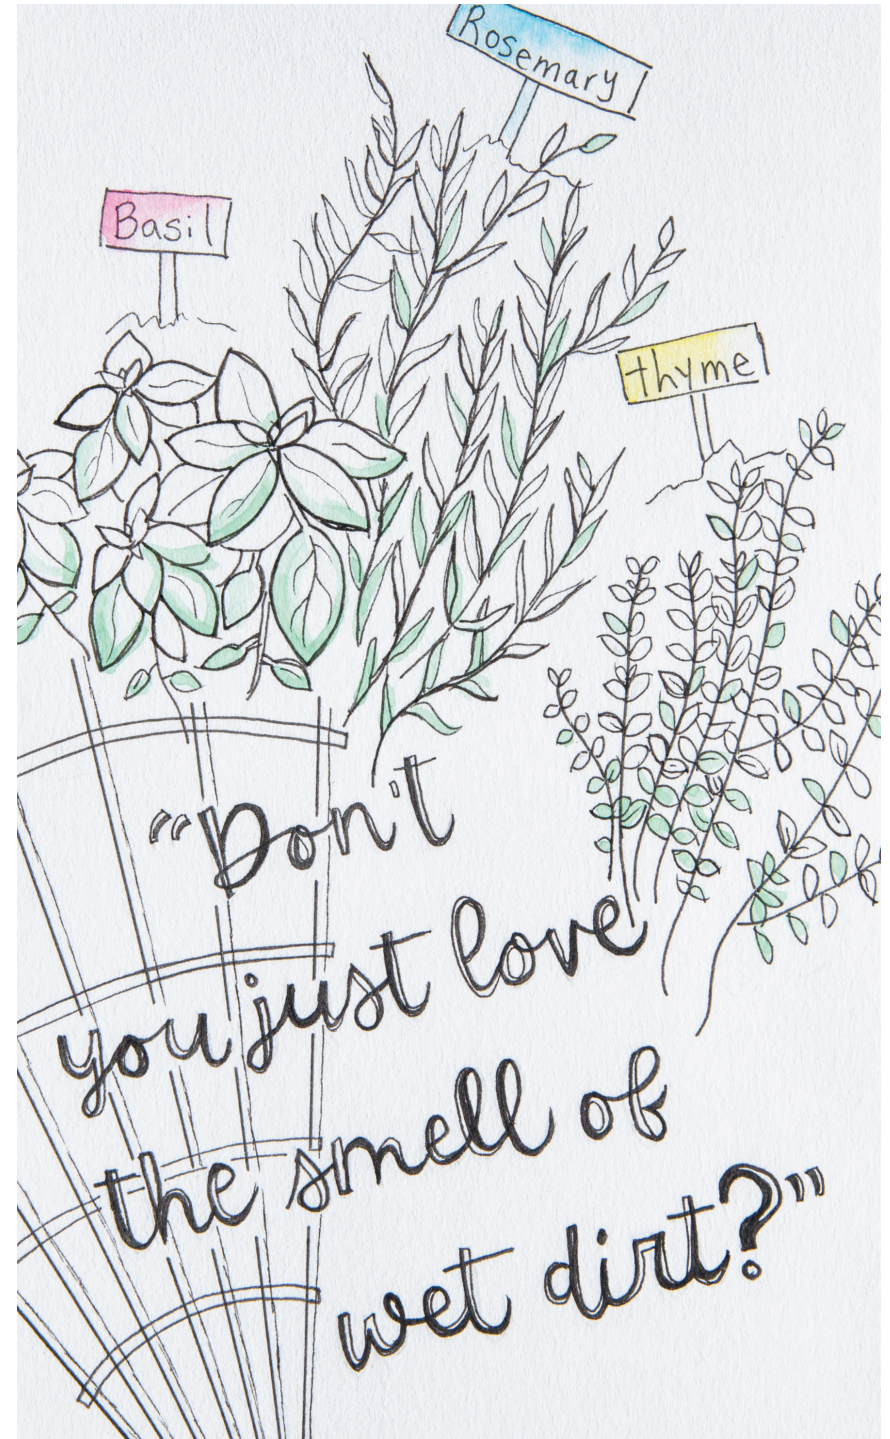 Rosemary
Basil
thyme
"Don't
you just love
the smell of
wet dirt?"